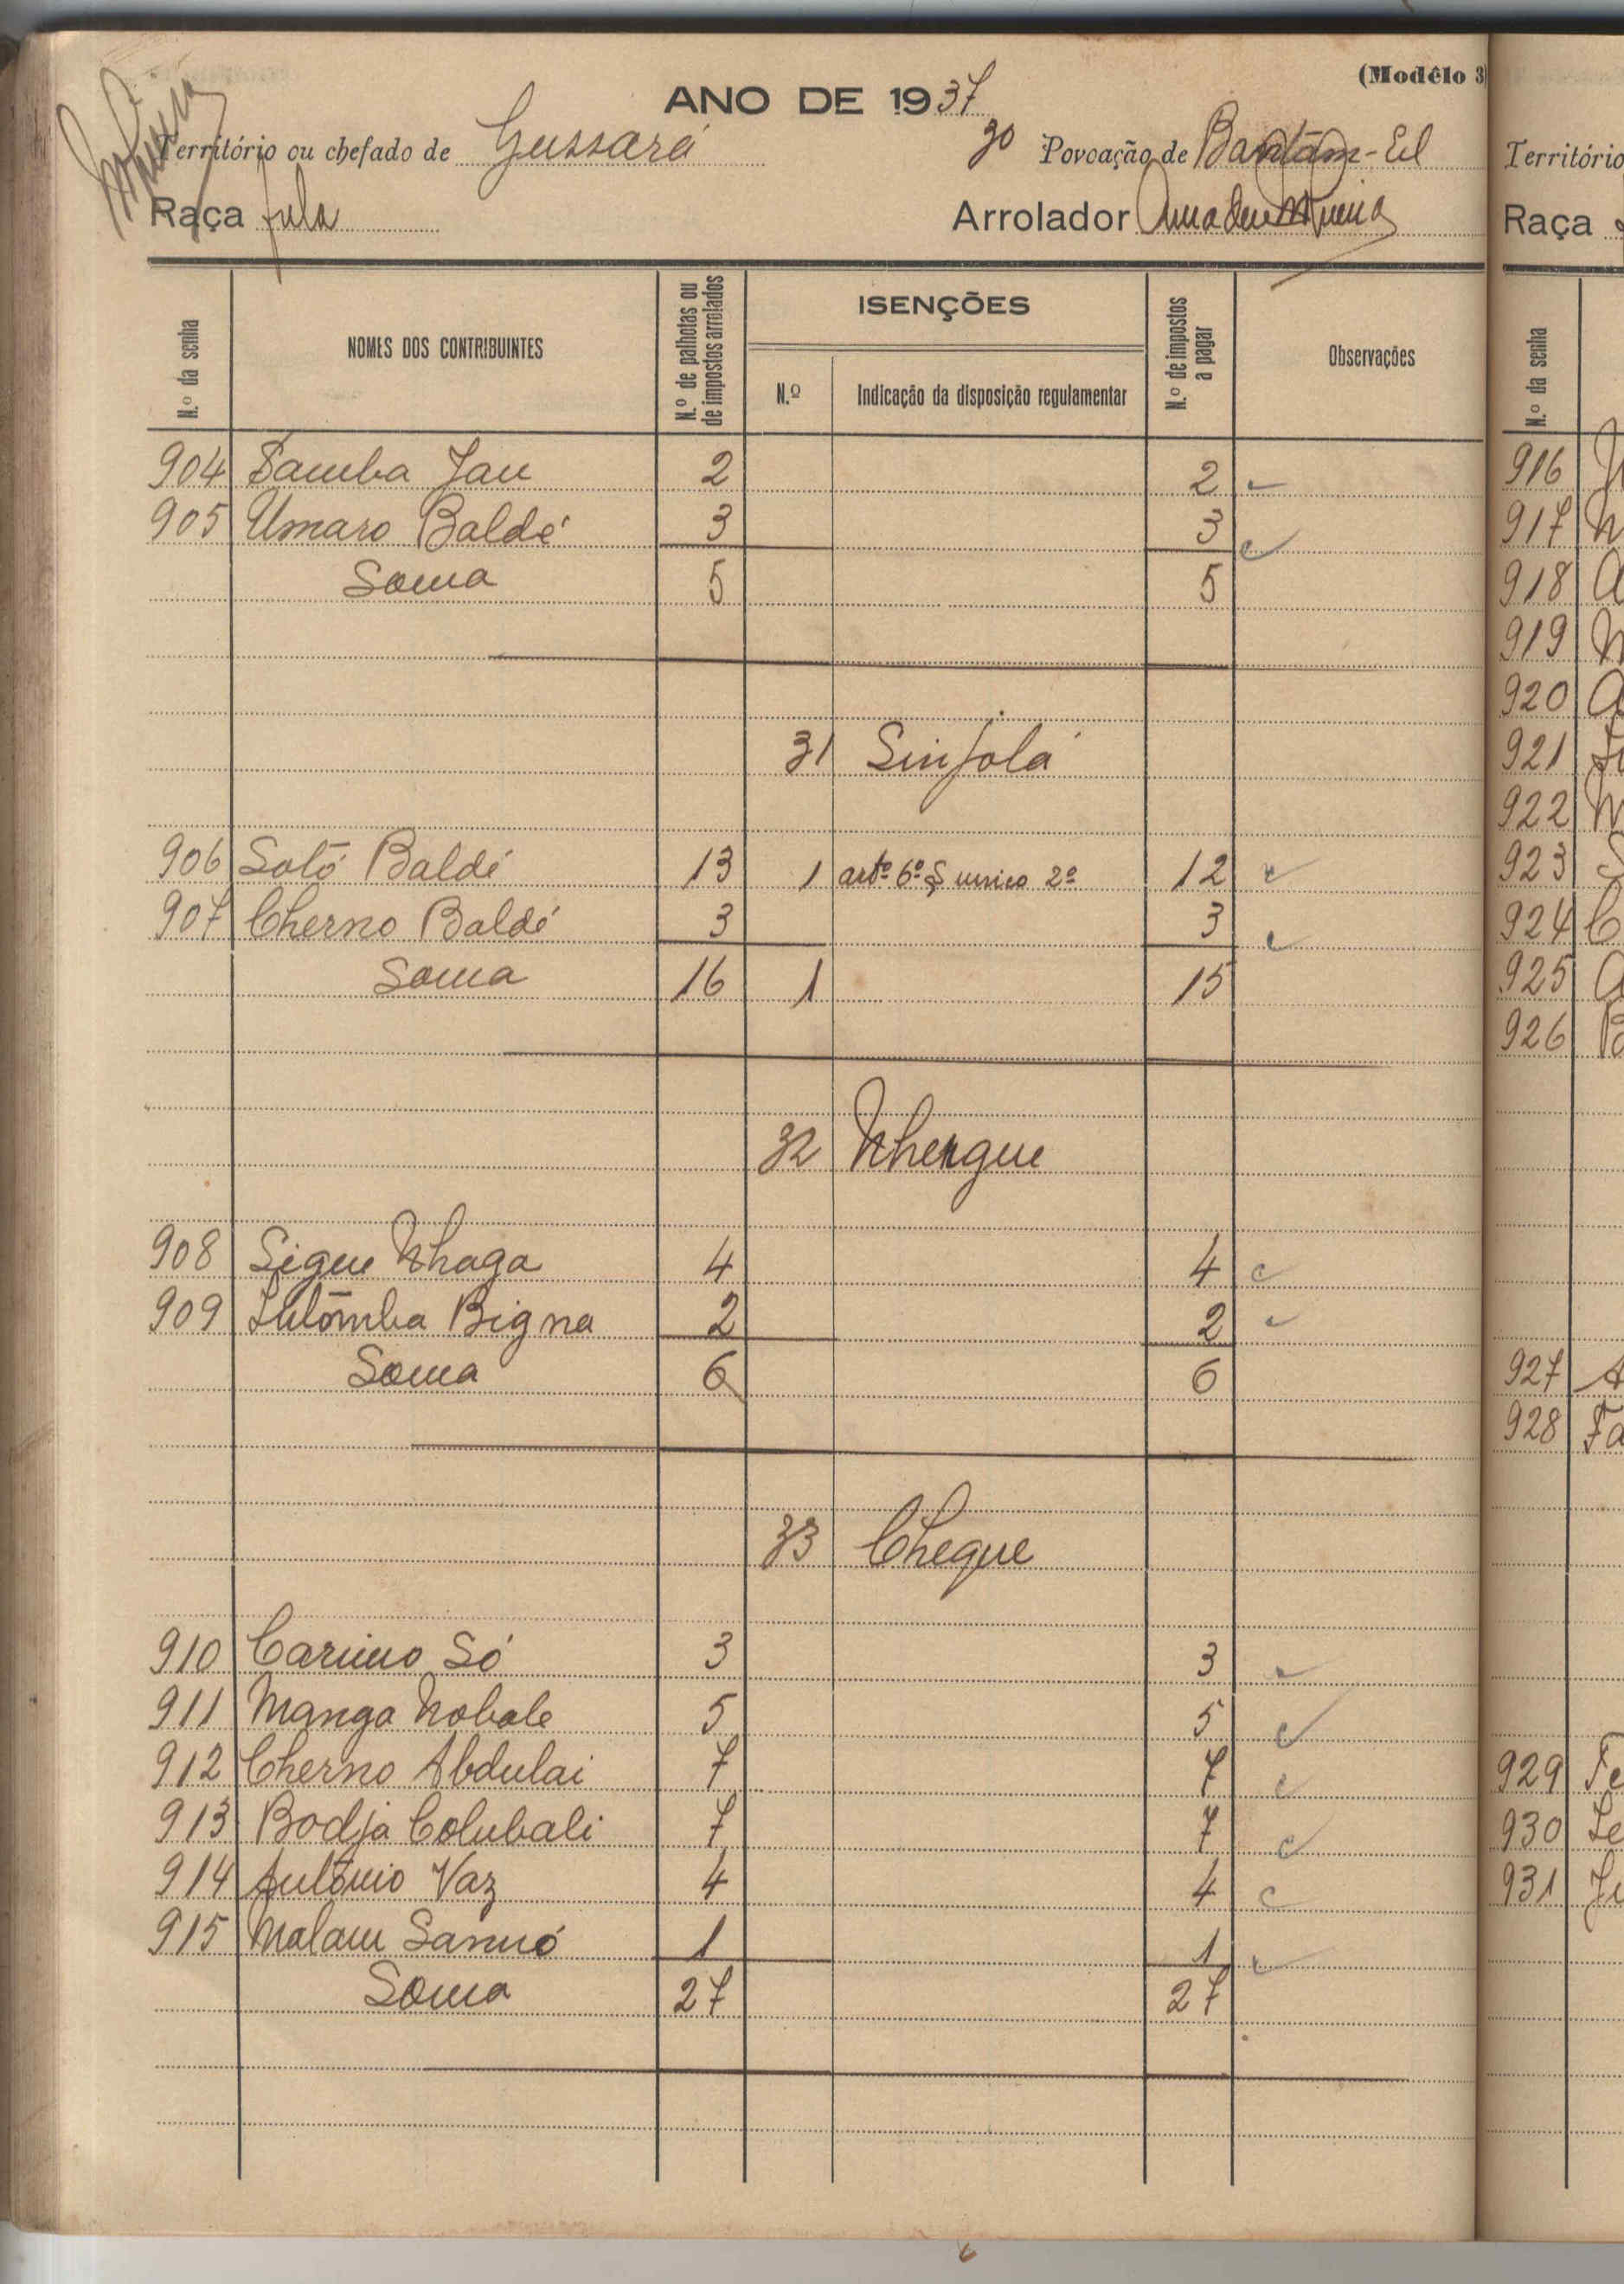 (Modêlo 3)
ANO DE 1937
Território ou chefado de Gussará 30 Povoação de Bantãm-Eil
Raça fula Arrolador
N.º da senha NOMES DOS CONTRIBUINTES N.º de palhotas ou de impostos arrolados ISENÇÕES N.º Indicação da disposição regulamentar N.º de impostos a pagar Observações
904 Samba Jau 2 2
905 Umaro Baldé 3 3
Soma 5 5
31 Sinjolá
906 Soló Baldé 13 1 artº 6º § unico 2º 12
907 Cherno Baldé 3 3
Soma 16 1 15
32 Nhengue
908 Sigue Nhaga 4 4
909 Bigna 2 2
Soma 6 6
33 Cheque
910 Carimo Só 3 3
911 Manga Nobale 5 5
912 Cherno Abdulai 7 7
913 Bodja Colubali 7 7
914 António Vaz 4 4
915 Malam Sannó 1 1
Soma 27 27
Território
Raça
N.º da senha
916
917
918
919
920
921
922
923
924
925
926
927
928
929
930
931